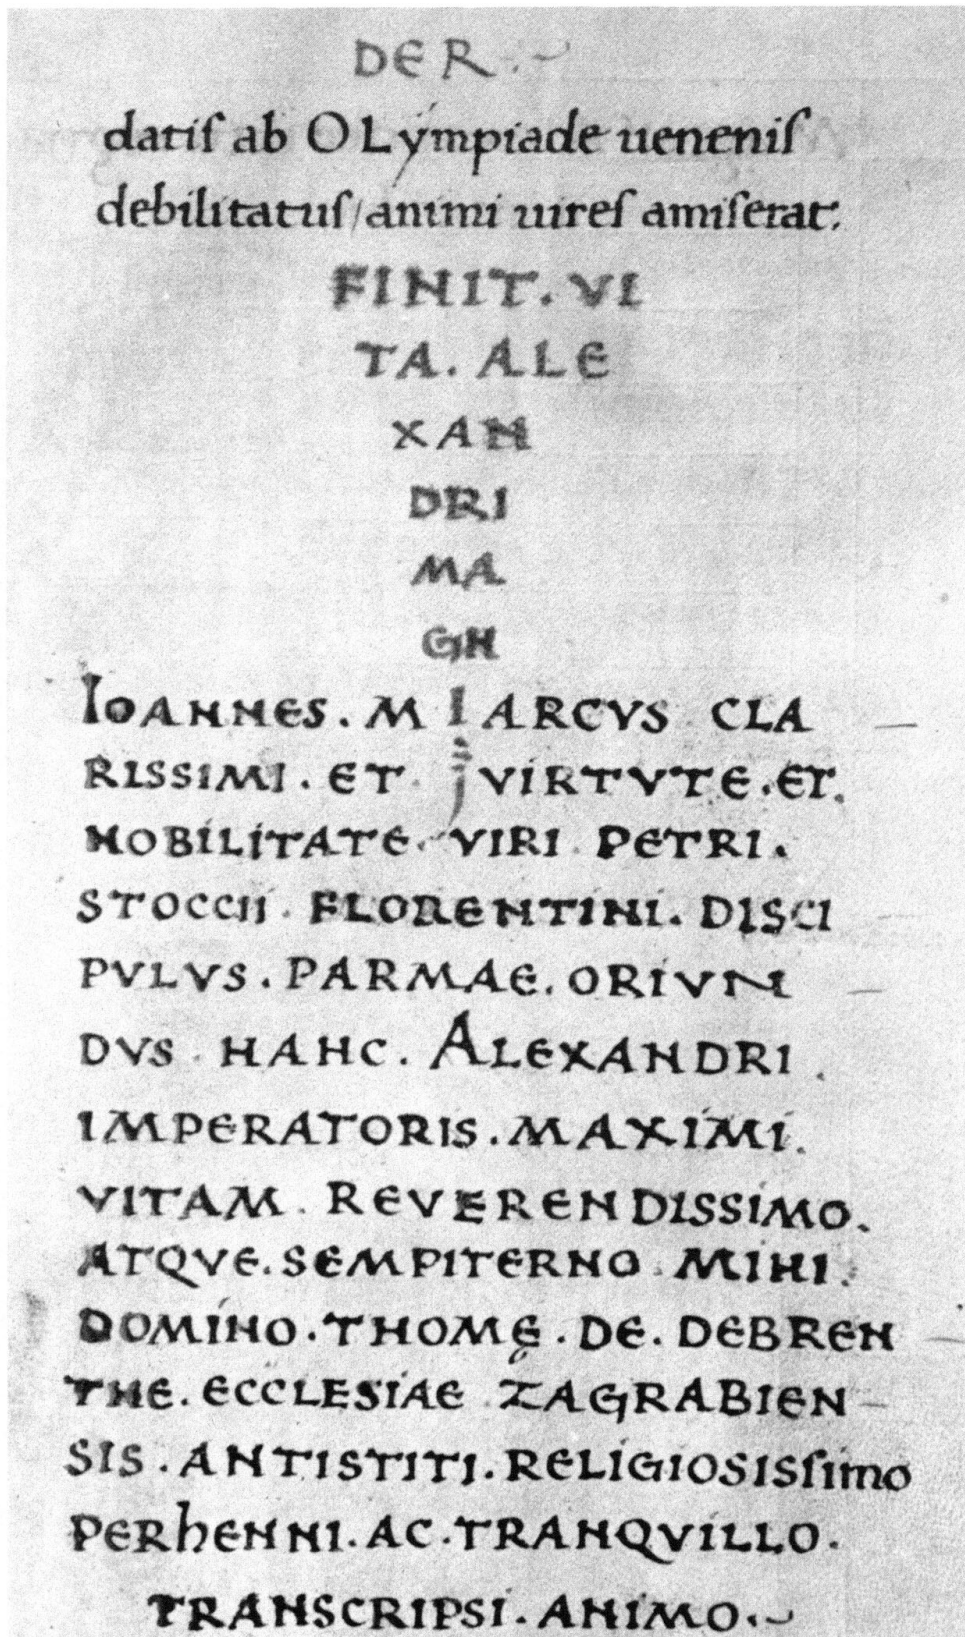 DER.
datis ab OLympiade uenenis
debilitatus/animi uires amiserat.
FINIT. VI
TA. ALE
XAN
DRI
MA
GN
IOANNES. M I ARCVS CLA
RISSIMI. ET j VIRTVTE. ET.
NOBILITATE. VIRI PETRI.
STOCCII. FLORENTINI. DISCI
PVLVS. PARMAE. ORIVN
DVS HANC. ALEXANDRI.
IMPERATORIS. MAXIMI.
VITAM. REVERENDISSIMO.
ATQVE. SEMPITERNO MIHI.
DOMINO. THOMĘ. DE. DEBREN
THE. ECCLESIAE ZAGRABIEN
SIS. ANTISTITI. RELIGIOSISsimo
PERhENNI. AC. TRANQVILLO.
TRANSCRIPSI. ANIMO.